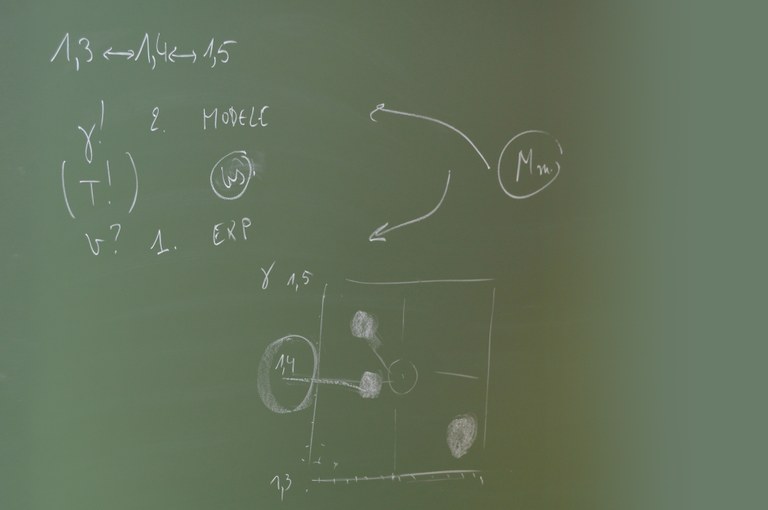 1,3 ↔ 1,4 ↔ 1,5
γ! 2. MODELE
(T!)
v? 1. EXP
M m.
γ 1,5
1,4
1,3